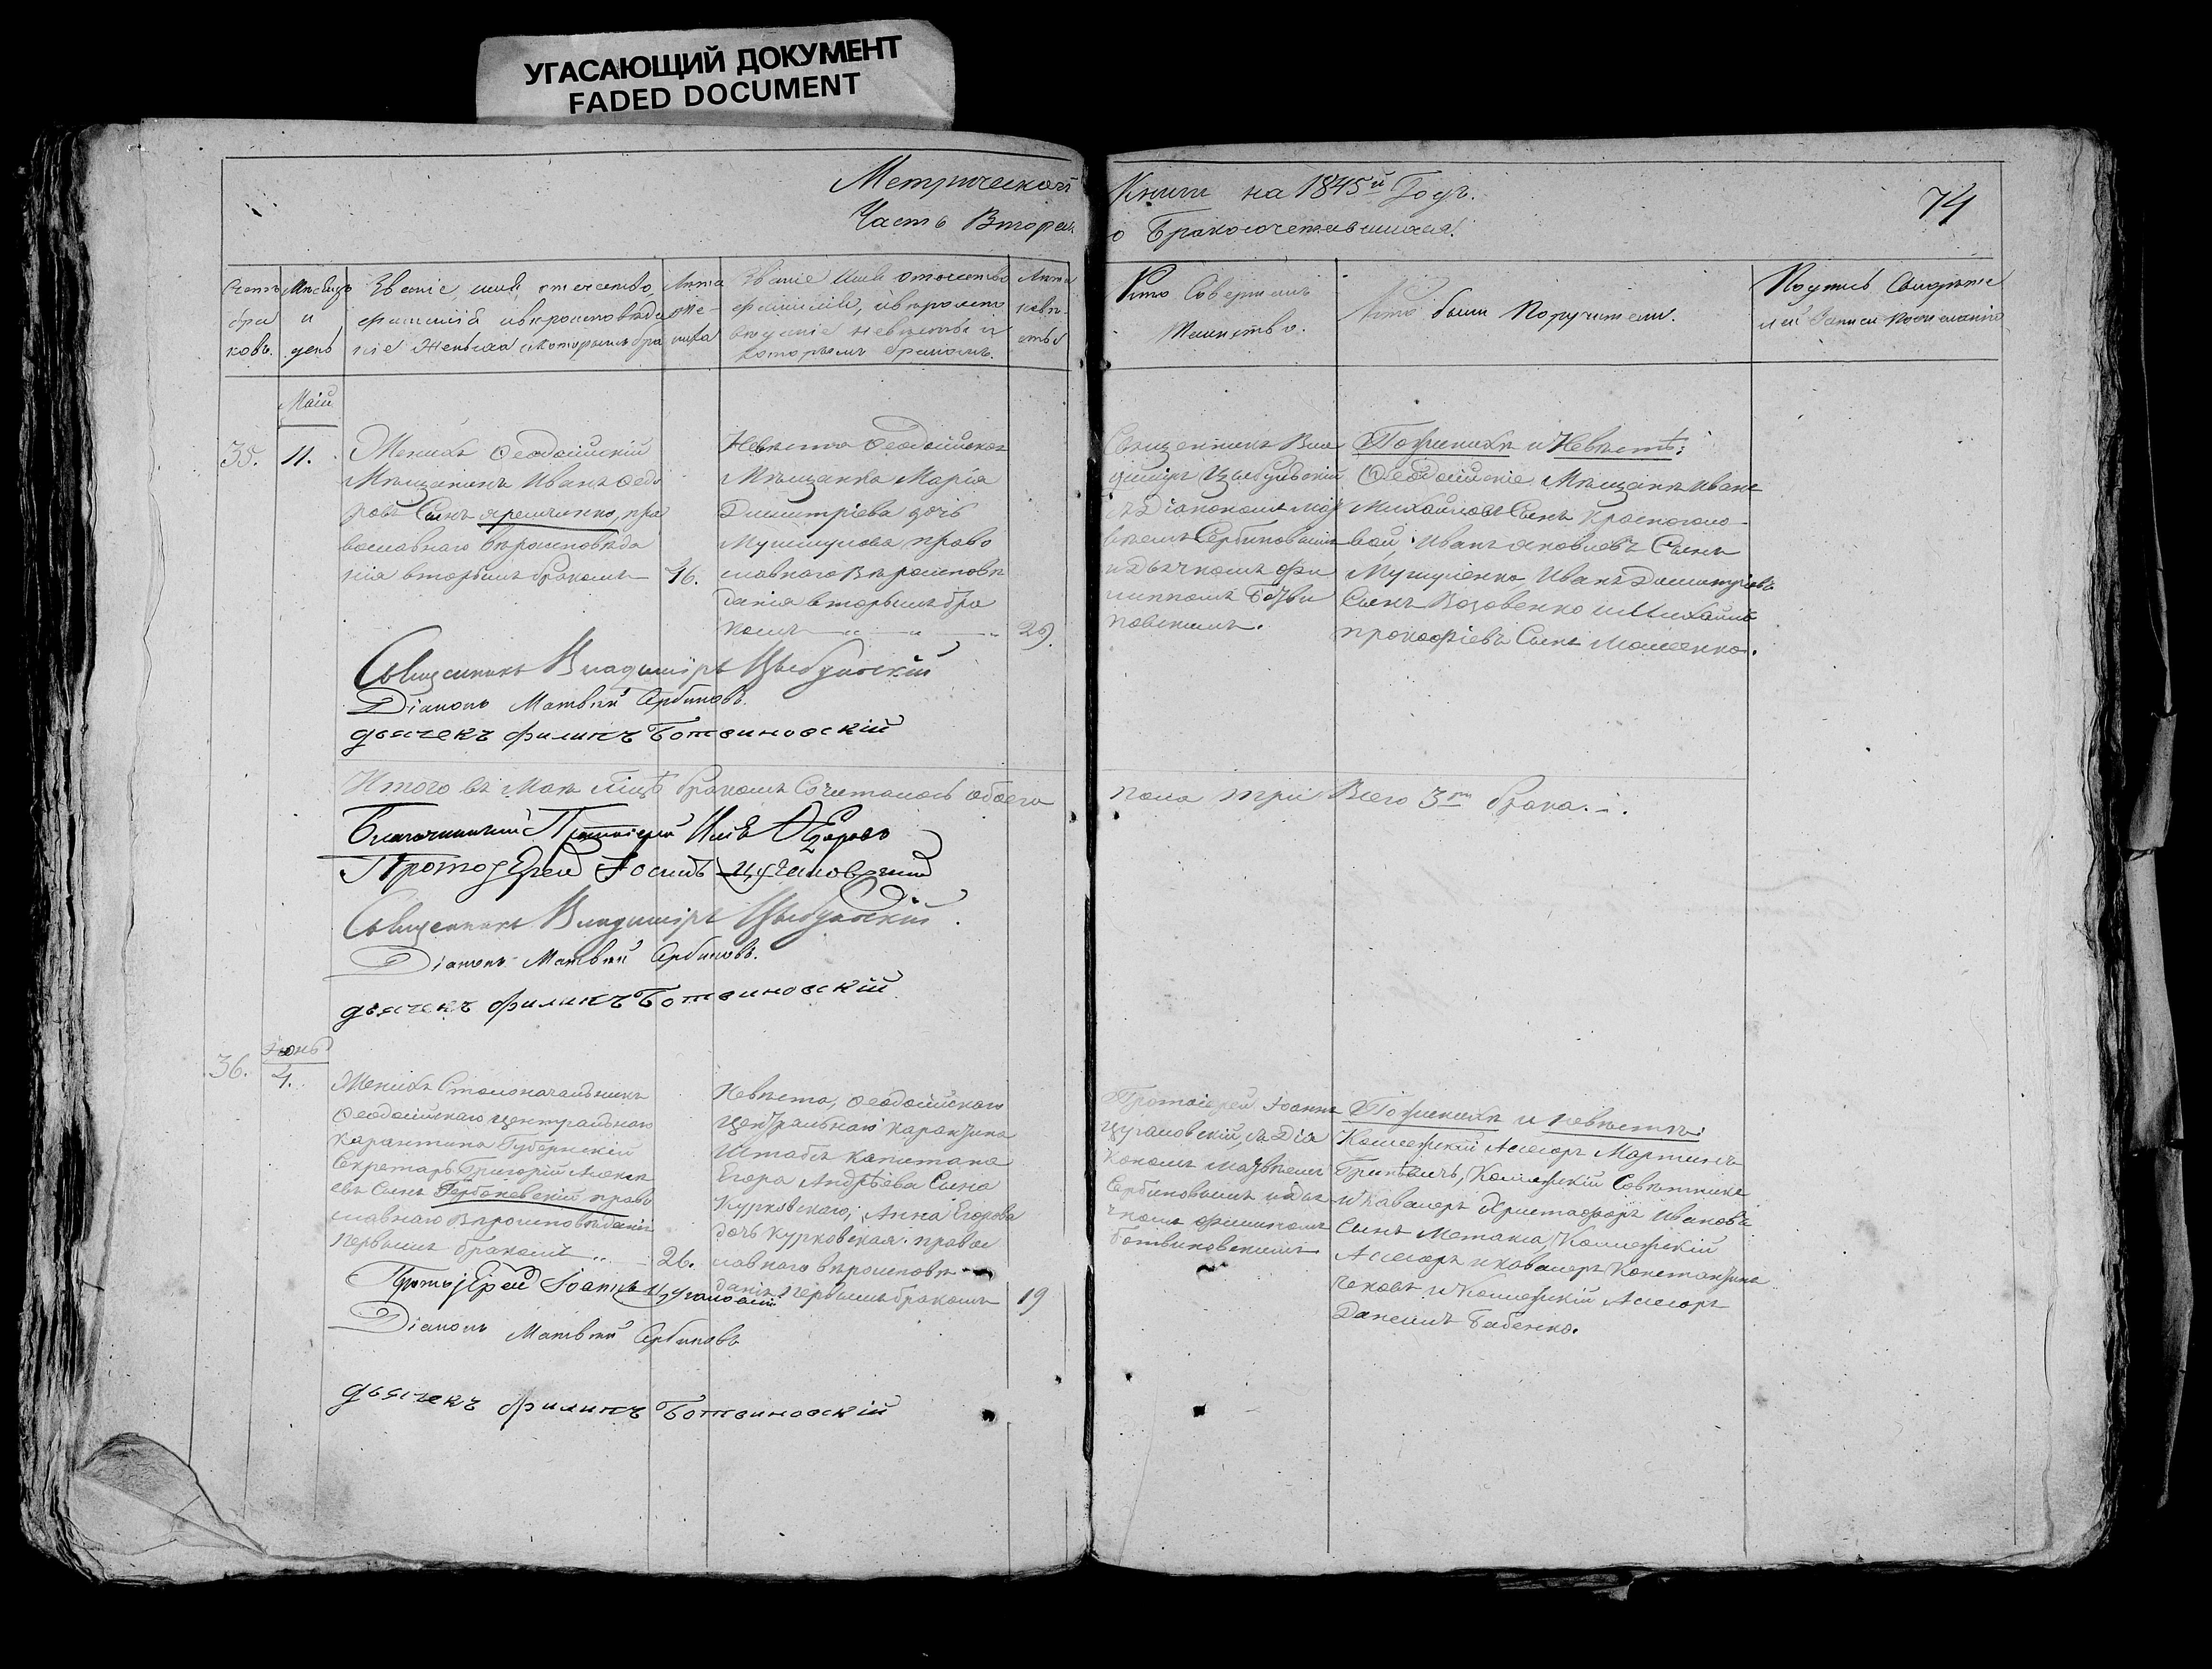 УГАСАЮЩИЙ ДОКУМЕНТ
FADED DOCUMENT
Метрической
Часть Вторая
Книги на 1845й Годъ.
о Бракосочетавшихся.
74
Счетъ
бра
ковъ.
Мѣсяцъ
и
день
Званіе, имя, отечество,
фамилія и вѣроисповѣда
ніе Жениха и которымъ бра
Лѣта
же-
ниха
Званіе Имя отечество
фамилія, и вѣроиспо
вѣданіе невѣсты и
которымъ бракомъ.
Лѣта
невѣ-
сты
Кто Совершалъ
Таинство.
Кто были Поручители.
Подпись Свидѣте
лей Записи по желанію
Маій
35.
11.
Женихъ Ѳеодосійскій
Мѣщанинъ Иванъ Ѳедо
ровъ Сынъ Яременко, пра
вославнаго вѣроисповѣда
нія вторымъ бракомъ
46.
Невѣста Ѳеодосійская
Мѣщанка Марія
Димитріева дочь
право
славнаго Вѣроисповѣ
данія вторымъ бра
комъ
29.
Священникъ Вла
диміръ Цыбульскій
съ Діакономъ Мат
вѣемъ Сербиновымъ
и дьячкомъ Фи
липпомъ Ботви
новскимъ.
По женихѣ и Невѣстѣ:
Ѳеодосійскіе Мѣщане Иванъ
Михайловъ Сынъ Красноголо-
вой, Иванъ Яковлевъ Сынъ
Иванъ Димитріевъ
Сынъ Возовенко и Михаилъ
Прокофіевъ Сынъ Мошенко.
Священникъ Владиміръ Цыбульскій
Діаконъ Матвѣй Сербиновъ.
дьячекъ филипъ Ботвиновскій
Итого въ Маѣ мцѣ бракомъ Сочеталось обоего
пола три Всего 3ри брака.
Благочинный Протоіерей
ПротоІерей Іоаннъ Цугановскій
Священникъ Владиміръ Цыбульскій.
Діаконъ Матвѣй Сербиновъ.
дьячекъ филипъ Ботвиновскій
Іюнь
36.
4.
Женихъ Столоначальникъ
Ѳеодосійскаго Центральнаго
Карантина Губернскій
Секретарь Григорій Алексѣ
евъ Сынъ Горбоневскій право
славнаго Вѣроисповѣданія
первымъ бракомъ
26.
Невѣста, Ѳеодосійскаго
Центральнаго Карантина
Штабсъ капитана
Егора Андрѣева Сына
Курковскаго, Анна Егорова
дочь Курковская. правос
лавнаго вѣроисповѣ
данія первымъ бракомъ
19
Протоіерей Іоаннъ
Цугановскій, съ Діа
кономъ Матвѣемъ
Сербиновымъ и дья
чкомъ Филипомъ
Ботвиновскимъ
По женихѣ и невѣстѣ:
Коллежскій Асессоръ Мартинъ
Коллежскій Совѣтникъ
и Кавалеръ Христофоръ Ивановъ
Сынъ Метакса, Коллежскій
Асессоръ и кавалеръ Константинъ
и Коллежскій Асессоръ
Даніилъ Бабенко.
ПротоІерей Іоаннъ Цугановскій
Діаконъ Матвѣй Сербиновъ
дьячекъ филипъ Ботвиновскій